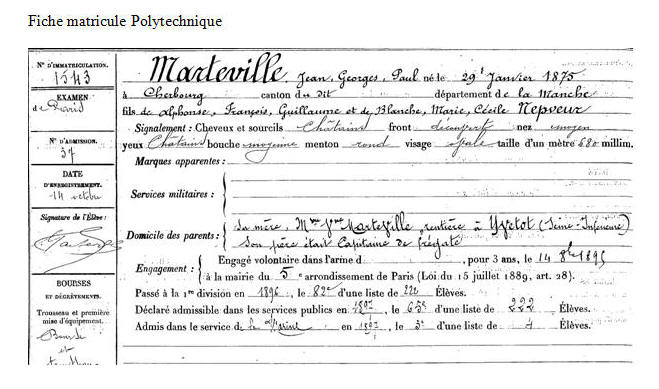 Fiche matricule Polytechnique
N° D'IMMATRICULATION.
1543
EXAMEN
de Paris
N° D'ADMISSION.
37
DATE
D'ENREGISTREMENT.
14 octobre
Signature de l'Élève :
BOURSES
ET DÉCRÈTEMENTS.
Trousseau et première
mise d'équipement.
Bourse
et
trousseau
Marteville, Jean, Georges, Paul né le 29 Janvier 1875
à Cherbourg canton du dit département de la Manche
fils de Alphonse, François, Guillaume et de Blanche, Marie, Cécile Nepveur
Signalement : Cheveux et sourcils Châtains front découvert nez moyen
yeux Châtains bouche moyenne menton rond visage ovale taille d'un mètre 680 millim.
Marques apparentes :
Services militaires :
Domicile des parents :
Sa mère, Mme Vve Marteville, rentière à Yvetot (Seine-Inférieure)
Son père était Capitaine de frégate
Engagement :
Engagé volontaire dans l'arme d , pour 3 ans, le 14 8bre 1895
à la mairie du 5e arrondissement de Paris (Loi du 15 juillet 1889, art. 28).
Passé à la 1re division en 1896, le 82e d'une liste de 222 Élèves.
Déclaré admissible dans les services publics en 1897, le 65e d'une liste de 222 Élèves.
Admis dans le service de la Marine en 1897, le 3e d'une liste de 4 Élèves.